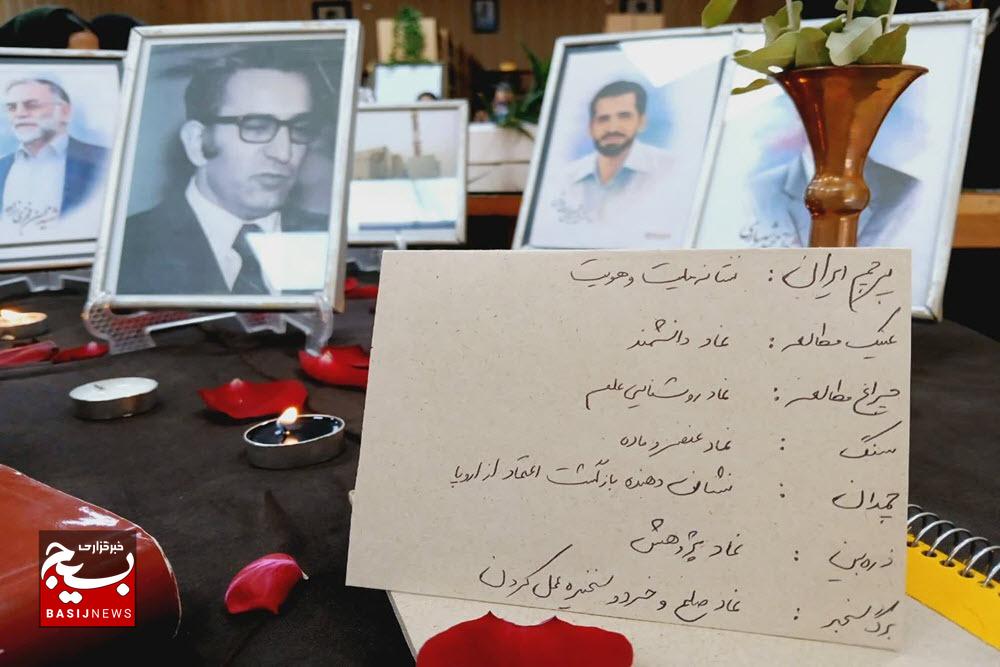 پرچم ایران : نشانه ملیت و هویت
عینک مطالعه : نماد دانشمند
چراغ مطالعه : نماد روشنایی علم
سنگ : نماد عنصر و ماده
چمدان : نشان دهنده بازگشت اعتماد از اروپا
ذره‌بین : نماد پژوهش
برگ سنجد : نماد صلح و خرد و سنجیده عمل کردن
خبرگزاری
بسیج
BASIJNEWS